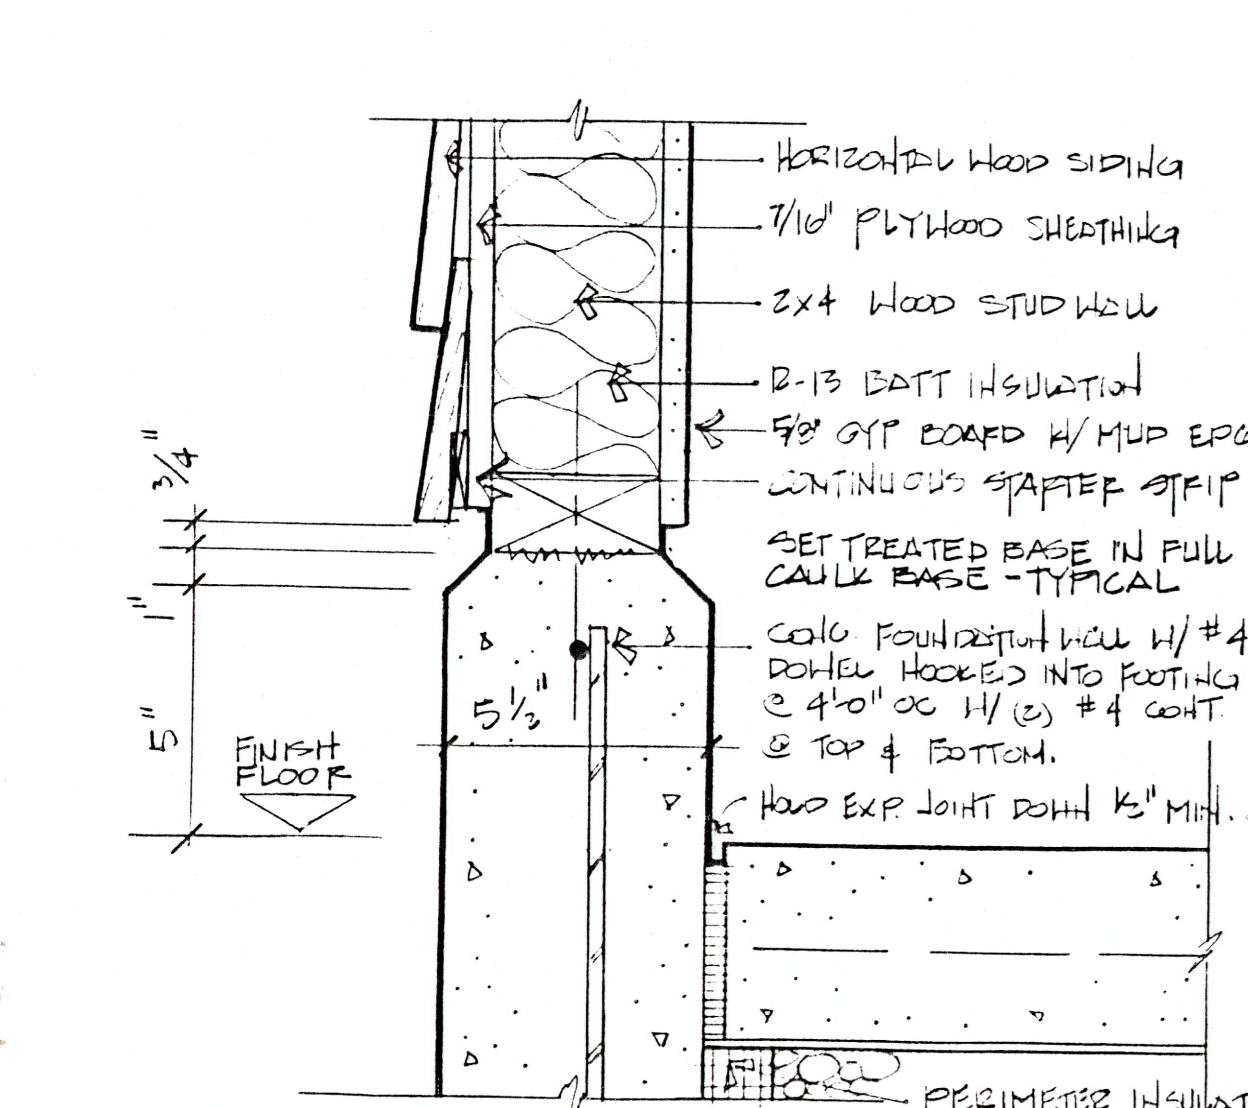 HORIZONTAL WOOD SIDING
7/16" PLYWOOD SHEATHING
2x4 WOOD STUD WALL
R-13 BATT INSULATION
5/8" GYP BOARD W/ MUD EDG
CONTINUOUS STARTER STRIP
SET TREATED BASE IN FULL
CAULK BASE - TYPICAL
CONC. FOUNDATION WALL W/ #4
DOWEL HOOKED INTO FOOTING
@ 4'-0" OC W/ (2) #4 CONT.
@ TOP & BOTTOM.
HOLD EXP. JOINT DOWN 1/2" MIN.
PERIMETER INSULAT
3/4"
1"
5"
5 1/2"
FINISH
FLOOR